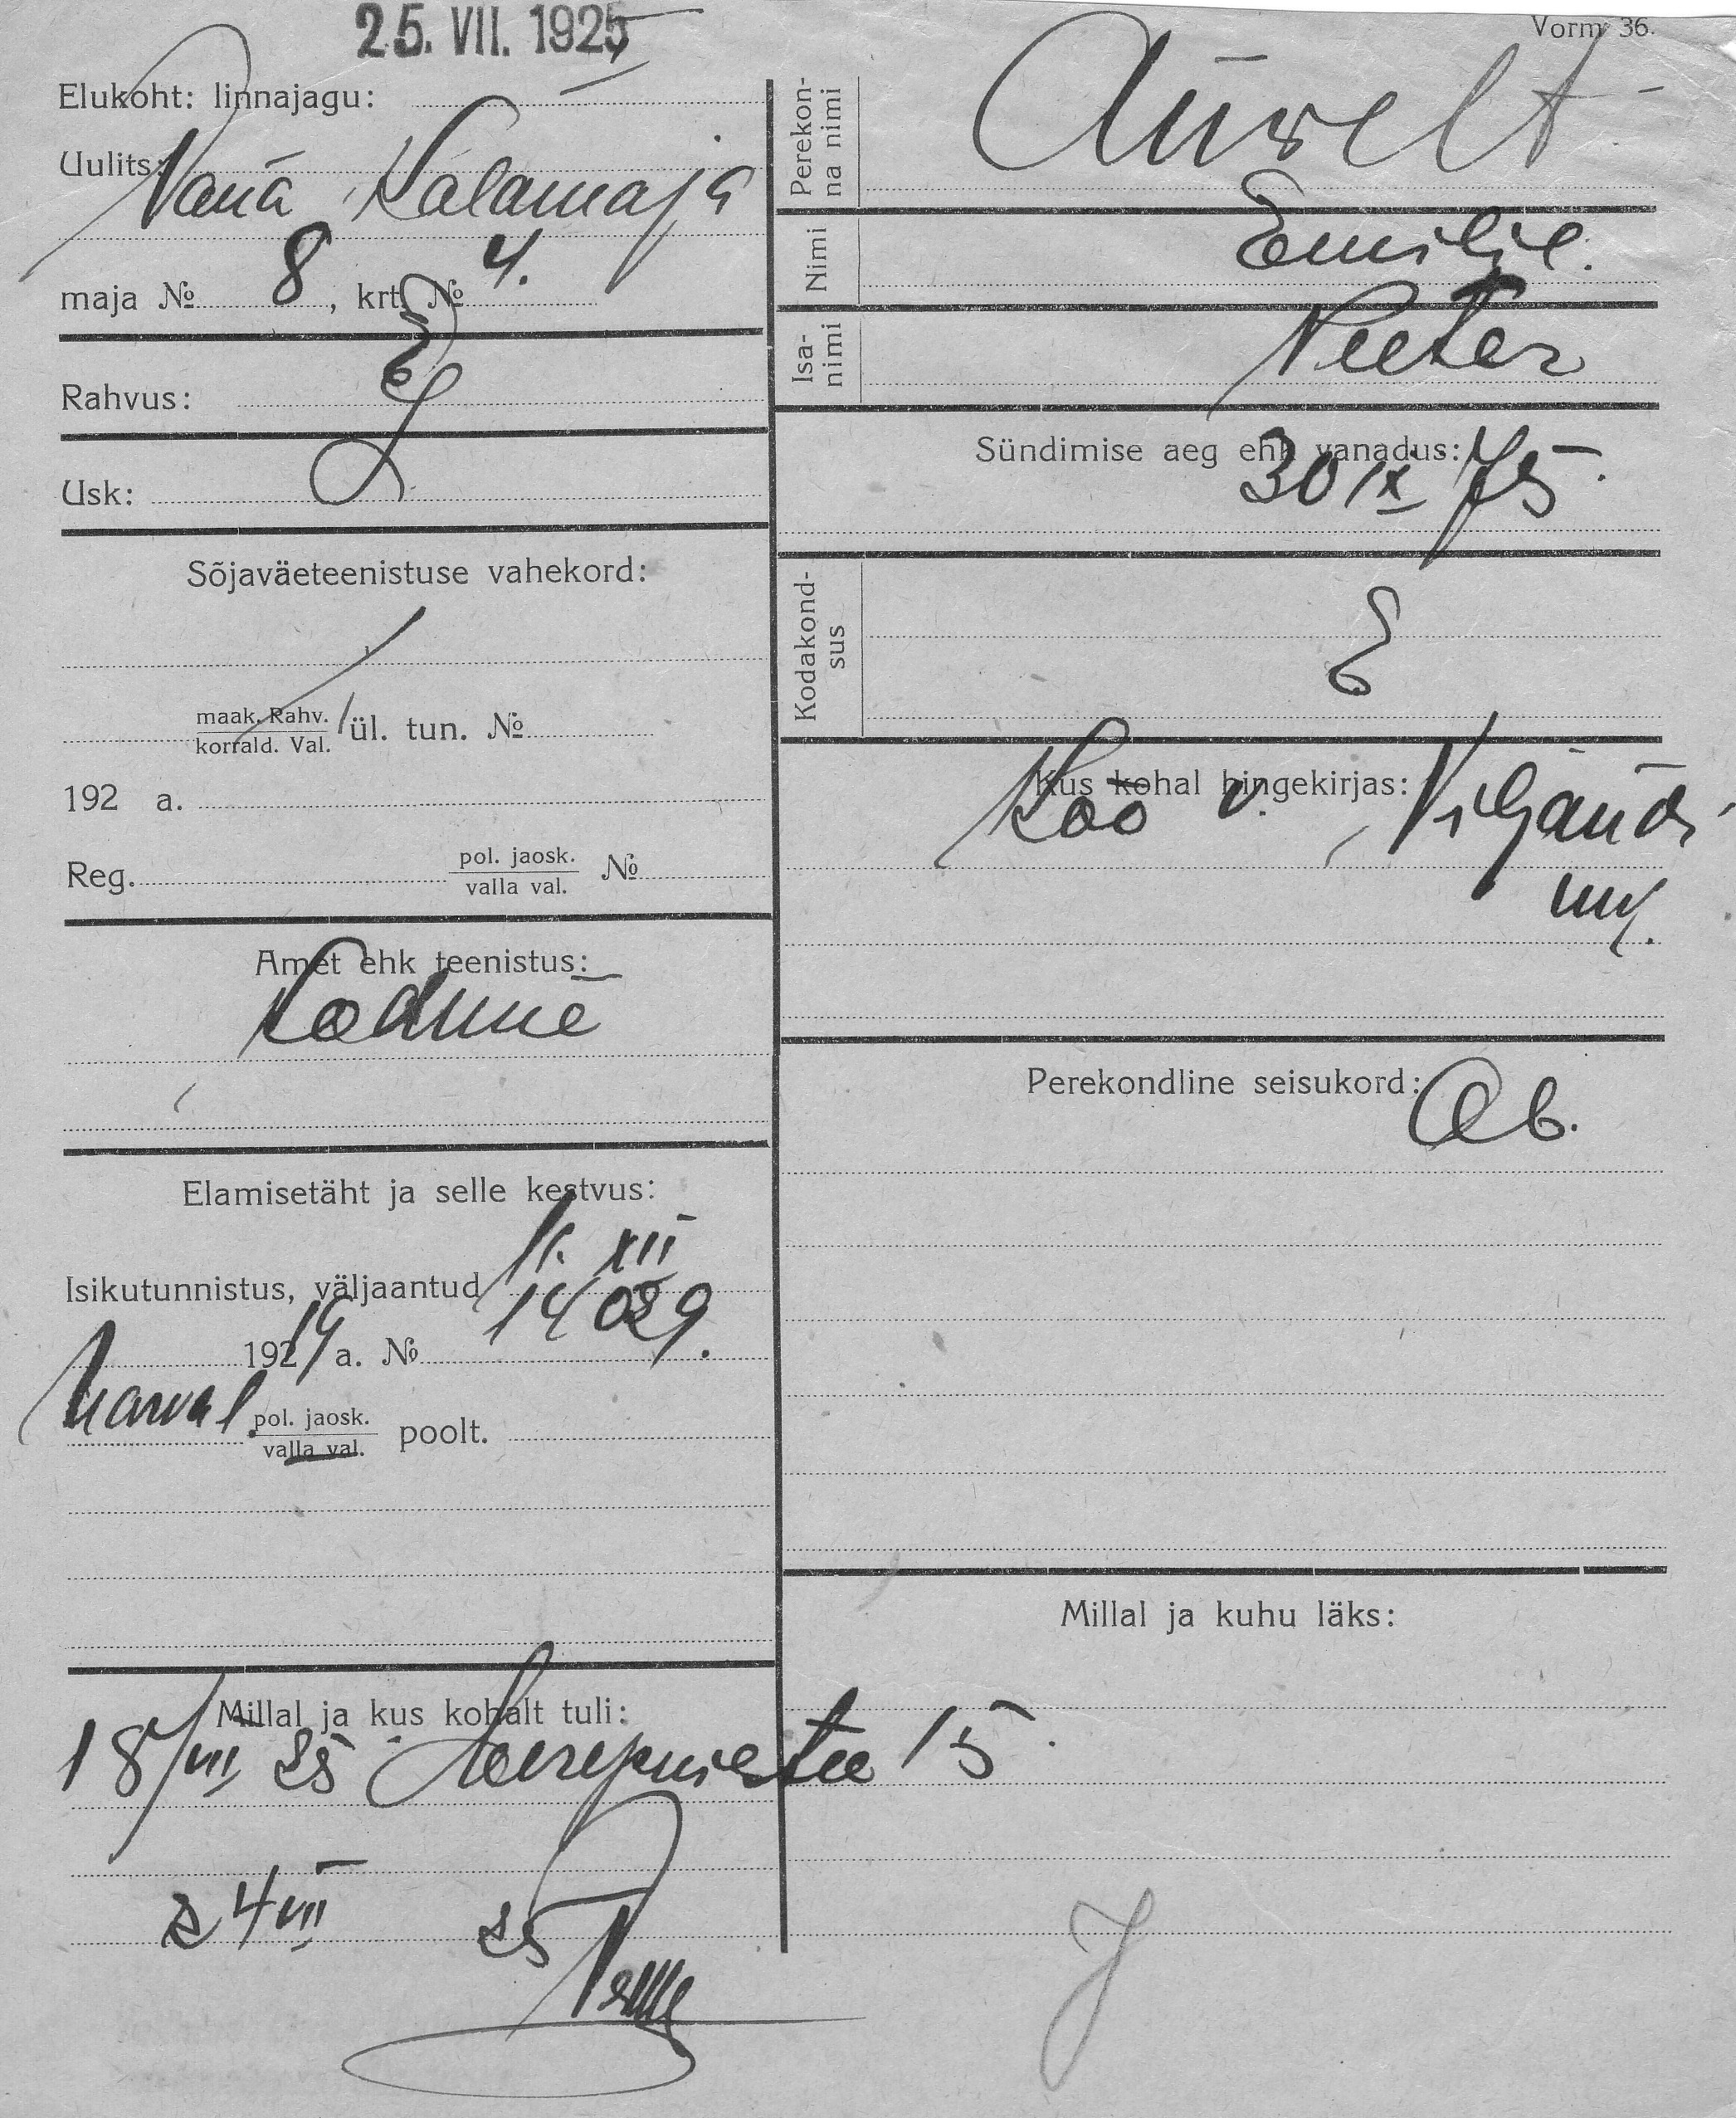 25. VII. 1925
Vorm 36.
Elukoht: linnajagu:
Uulits: Vana Kalamaja
maja № 8, krt. № 4.
Rahvus: E
Usk: L
Sõjaväeteenistuse vahekord:
maak. Rahv.
korrald. Val. ül. tun. №
192 a.
Reg. pol. jaosk. №
valla val.
Amet ehk teenistus:
Kodune
Elamisetäht ja selle kestvus:
11. XII
Isikutunnistus, väljaantud
1919 a. № 14029.
Narva l. pol. jaosk. poolt.
valla val.
Millal ja kus kohalt tuli:
18/VII 25 Heerepuiestee 15.
24 VII 25
Perekonna nimi
Nimi Emilie.
Isanimi Peeter
Sündimise aeg ehk vanadus:
30 IX 75.
Kodakondsus E
Kus kohal hingekirjas:
Koo v. Viljandi
mk.
Perekondline seisukord: Ab.
Millal ja kuhu läks: